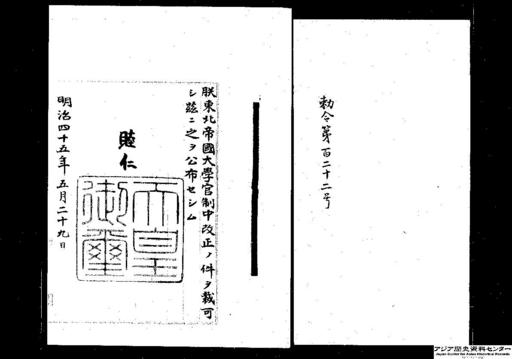 勅令第百二十二号
朕東北帝國大學官制中改正ノ件ヲ裁可
シ茲ニ之ヲ公布セシム
睦仁
天皇御璽
明治四十五年五月二十九日
アジア歴史資料センター
Japan Center for Asian Historical Records